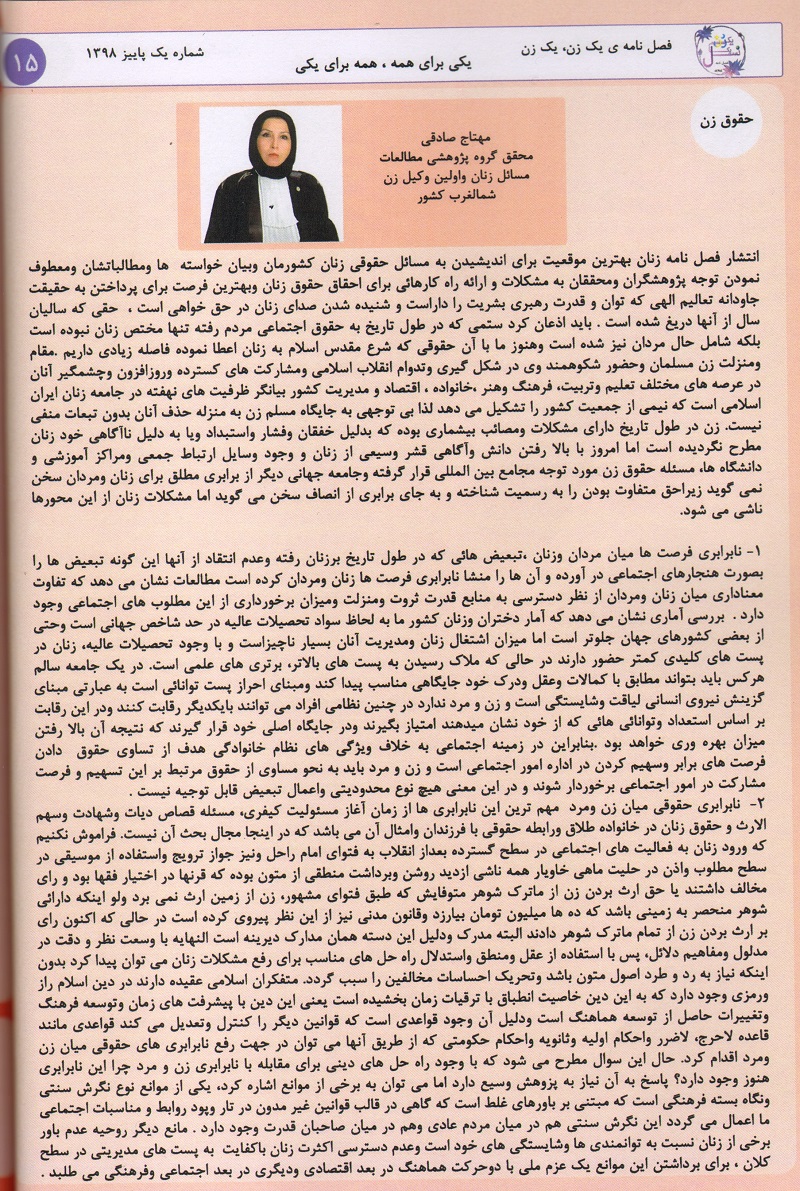 فصل نامه ی یک زن، یک زن
یکی برای همه ، همه برای یکی
شماره یک پاییز ۱۳۹۸
۱۵
حقوق زن
مهتاج صادقی
محقق گروه پژوهشی مطالعات
مسائل زنان واولین وکیل زن
شمالغرب کشور
انتشار فصل نامه زنان بهترین موقعیت برای اندیشیدن به مسائل حقوقی زنان کشورمان وبیان خواسته ها ومطالباتشان ومعطوف
نمودن توجه پژوهشگران ومحققان به مشکلات و ارائه راه کارهائی برای احقاق حقوق زنان وبهترین فرصت برای پرداختن به حقیقت
جاودانه تعالیم الهی که توان و قدرت رهبری بشریت را داراست و شنیده شدن صدای زنان در حق خواهی است ، حقی که سالیان
سال از آنها دریغ شده است . باید اذعان کرد ستمی که در طول تاریخ به حقوق اجتماعی مردم رفته تنها مختص زنان نبوده است
بلکه شامل حال مردان نیز شده است وهنوز ما با آن حقوقی که شرع مقدس اسلام به زنان اعطا نموده فاصله زیادی داریم .مقام
ومنزلت زن مسلمان وحضور شکوهمند وی در شکل گیری وتدوام انقلاب اسلامی ومشارکت های گسترده وروزافزون وچشمگیر آنان
در عرصه های مختلف تعلیم وتربیت، فرهنگ وهنر ،خانواده ، اقتصاد و مدیریت کشور بیانگر ظرفیت های نهفته در جامعه زنان ایران
اسلامی است که نیمی از جمعیت کشور را تشکیل می دهد لذا بی توجهی به جایگاه مسلم زن به منزله حذف آنان بدون تبعات منفی
نیست. زن در طول تاریخ دارای مشکلات ومصائب بیشماری بوده که بدلیل خفقان وفشار واستبداد ویا به دلیل ناآگاهی خود زنان
مطرح نگردیده است اما امروز با بالا رفتن دانش وآگاهی قشر وسیعی از زنان و وجود وسایل ارتباط جمعی ومراکز آموزشی و
دانشگاه ها، مسئله حقوق زن مورد توجه مجامع بین المللی قرار گرفته وجامعه جهانی دیگر از برابری مطلق برای زنان ومردان سخن
نمی گوید زیراحق متفاوت بودن را به رسمیت شناخته و به جای برابری از انصاف سخن می گوید اما مشکلات زنان از این محورها
ناشی می شود.
۱- نابرابری فرصت ها میان مردان وزنان ،تبعیض هائی که در طول تاریخ برزنان رفته وعدم انتقاد از آنها این گونه تبعیض ها را
بصورت هنجارهای اجتماعی در آورده و آن ها را منشا نابرابری فرصت ها زنان ومردان کرده است مطالعات نشان می دهد که تفاوت
معناداری میان زنان ومردان از نظر دسترسی به منابع قدرت ثروت ومنزلت ومیزان برخورداری از این مطلوب های اجتماعی وجود
دارد . بررسی آماری نشان می دهد که آمار دختران وزنان کشور ما به لحاظ سواد تحصیلات عالیه در حد شاخص جهانی است وحتی
از بعضی کشورهای جهان جلوتر است اما میزان اشتغال زنان ومدیریت آنان بسیار ناچیزاست و با وجود تحصیلات عالیه، زنان در
پست های کلیدی کمتر حضور دارند در حالی که ملاک رسیدن به پست های بالاتر، برتری های علمی است. در یک جامعه سالم
هرکس باید بتواند مطابق با کمالات وعقل ودرک خود جایگاهی مناسب پیدا کند ومبنای احراز پست توانائی است به عبارتی مبنای
گزینش نیروی انسانی لیاقت وشایستگی است و زن و مرد ندارد در چنین نظامی افراد می توانند بایکدیگر رقابت کنند ودر این رقابت
بر اساس استعداد وتوانائی هائی که از خود نشان میدهند امتیاز بگیرند ودر جایگاه اصلی خود قرار گیرند که نتیجه آن بالا رفتن
میزان بهره وری خواهد بود .بنابراین در زمینه اجتماعی به خلاف ویژگی های نظام خانوادگی هدف از تساوی حقوق دادن
فرصت های برابر وسهیم کردن در اداره امور اجتماعی است و زن و مرد باید به نحو مساوی از حقوق مرتبط بر این تسهیم و فرصت
مشارکت در امور اجتماعی برخوردار شوند و در این معنی هیچ نوع محدودیتی واعمال تبعیض قابل توجیه نیست .
۲- نابرابری حقوقی میان زن ومرد مهم ترین این نابرابری ها از زمان آغاز مسئولیت کیفری، مسئله قصاص دیات وشهادت وسهم
الارث و حقوق زنان در خانواده طلاق ورابطه حقوقی با فرزندان وامثال آن می باشد که در اینجا مجال بحث آن نیست. فراموش نکنیم
که ورود زنان به فعالیت های اجتماعی در سطح گسترده بعداز انقلاب به فتوای امام راحل ونیز جواز ترویج واستفاده از موسیقی در
سطح مطلوب واذن در حلیت ماهی خاویار همه ناشی ازدید روشن وبرداشت منطقی از متون بوده که قرنها در اختیار فقها بود و رای
مخالف داشتند یا حق ارث بردن زن از ماترک شوهر متوفایش که طبق فتوای مشهور، زن از زمین ارث نمی برد ولو اینکه دارائی
شوهر منحصر به زمینی باشد که ده ها میلیون تومان بیارزد وقانون مدنی نیز از این نظر پیروی کرده است در حالی که اکنون رای
بر ارث بردن زن از تمام ماترک شوهر دادند البته مدرک ودلیل این دسته همان مدارک دیرینه است النهایه با وسعت نظر و دقت در
مدلول ومفاهیم دلائل، پس با استفاده از عقل ومنطق واستدلال راه حل های مناسب برای رفع مشکلات زنان می توان پیدا کرد بدون
اینکه نیاز به رد و طرد اصول متون باشد وتحریک احساسات مخالفین را سبب گردد. متفکران اسلامی عقیده دارند در دین اسلام راز
ورمزی وجود دارد که به این دین خاصیت انطباق با ترقیات زمان بخشیده است یعنی این دین با پیشرفت های زمان وتوسعه فرهنگ
وتغییرات حاصل از توسعه هماهنگ است ودلیل آن وجود قواعدی است که قوانین دیگر را کنترل وتعدیل می کند قواعدی مانند
قاعده لاحرج، لاضرر واحکام اولیه وثانویه واحکام حکومتی که از طریق آنها می توان در جهت رفع نابرابری های حقوقی میان زن
ومرد اقدام کرد. حال این سوال مطرح می شود که با وجود راه حل های دینی برای مقابله با نابرابری زن و مرد چرا این نابرابری
هنوز وجود دارد؟ پاسخ به آن نیاز به پزوهش وسیع دارد اما می توان به برخی از موانع اشاره کرد، یکی از موانع نوع نگرش سنتی
ونگاه بسته فرهنگی است که مبتنی بر باورهای غلط است که گاهی در قالب قوانین غیر مدون در تار وپود روابط و مناسبات اجتماعی
ما اعمال می گردد این نگرش سنتی هم در میان مردم عادی وهم در میان صاحبان قدرت وجود دارد . مانع دیگر روحیه عدم باور
برخی از زنان نسبت به توانمندی ها وشایستگی های خود است وعدم دسترسی اکثرت زنان باکفایت به پست های مدیریتی در سطح
کلان ، برای برداشتن این موانع یک عزم ملی با دوحرکت هماهنگ در بعد اقتصادی ودیگری در بعد اجتماعی وفرهنگی می طلبد .